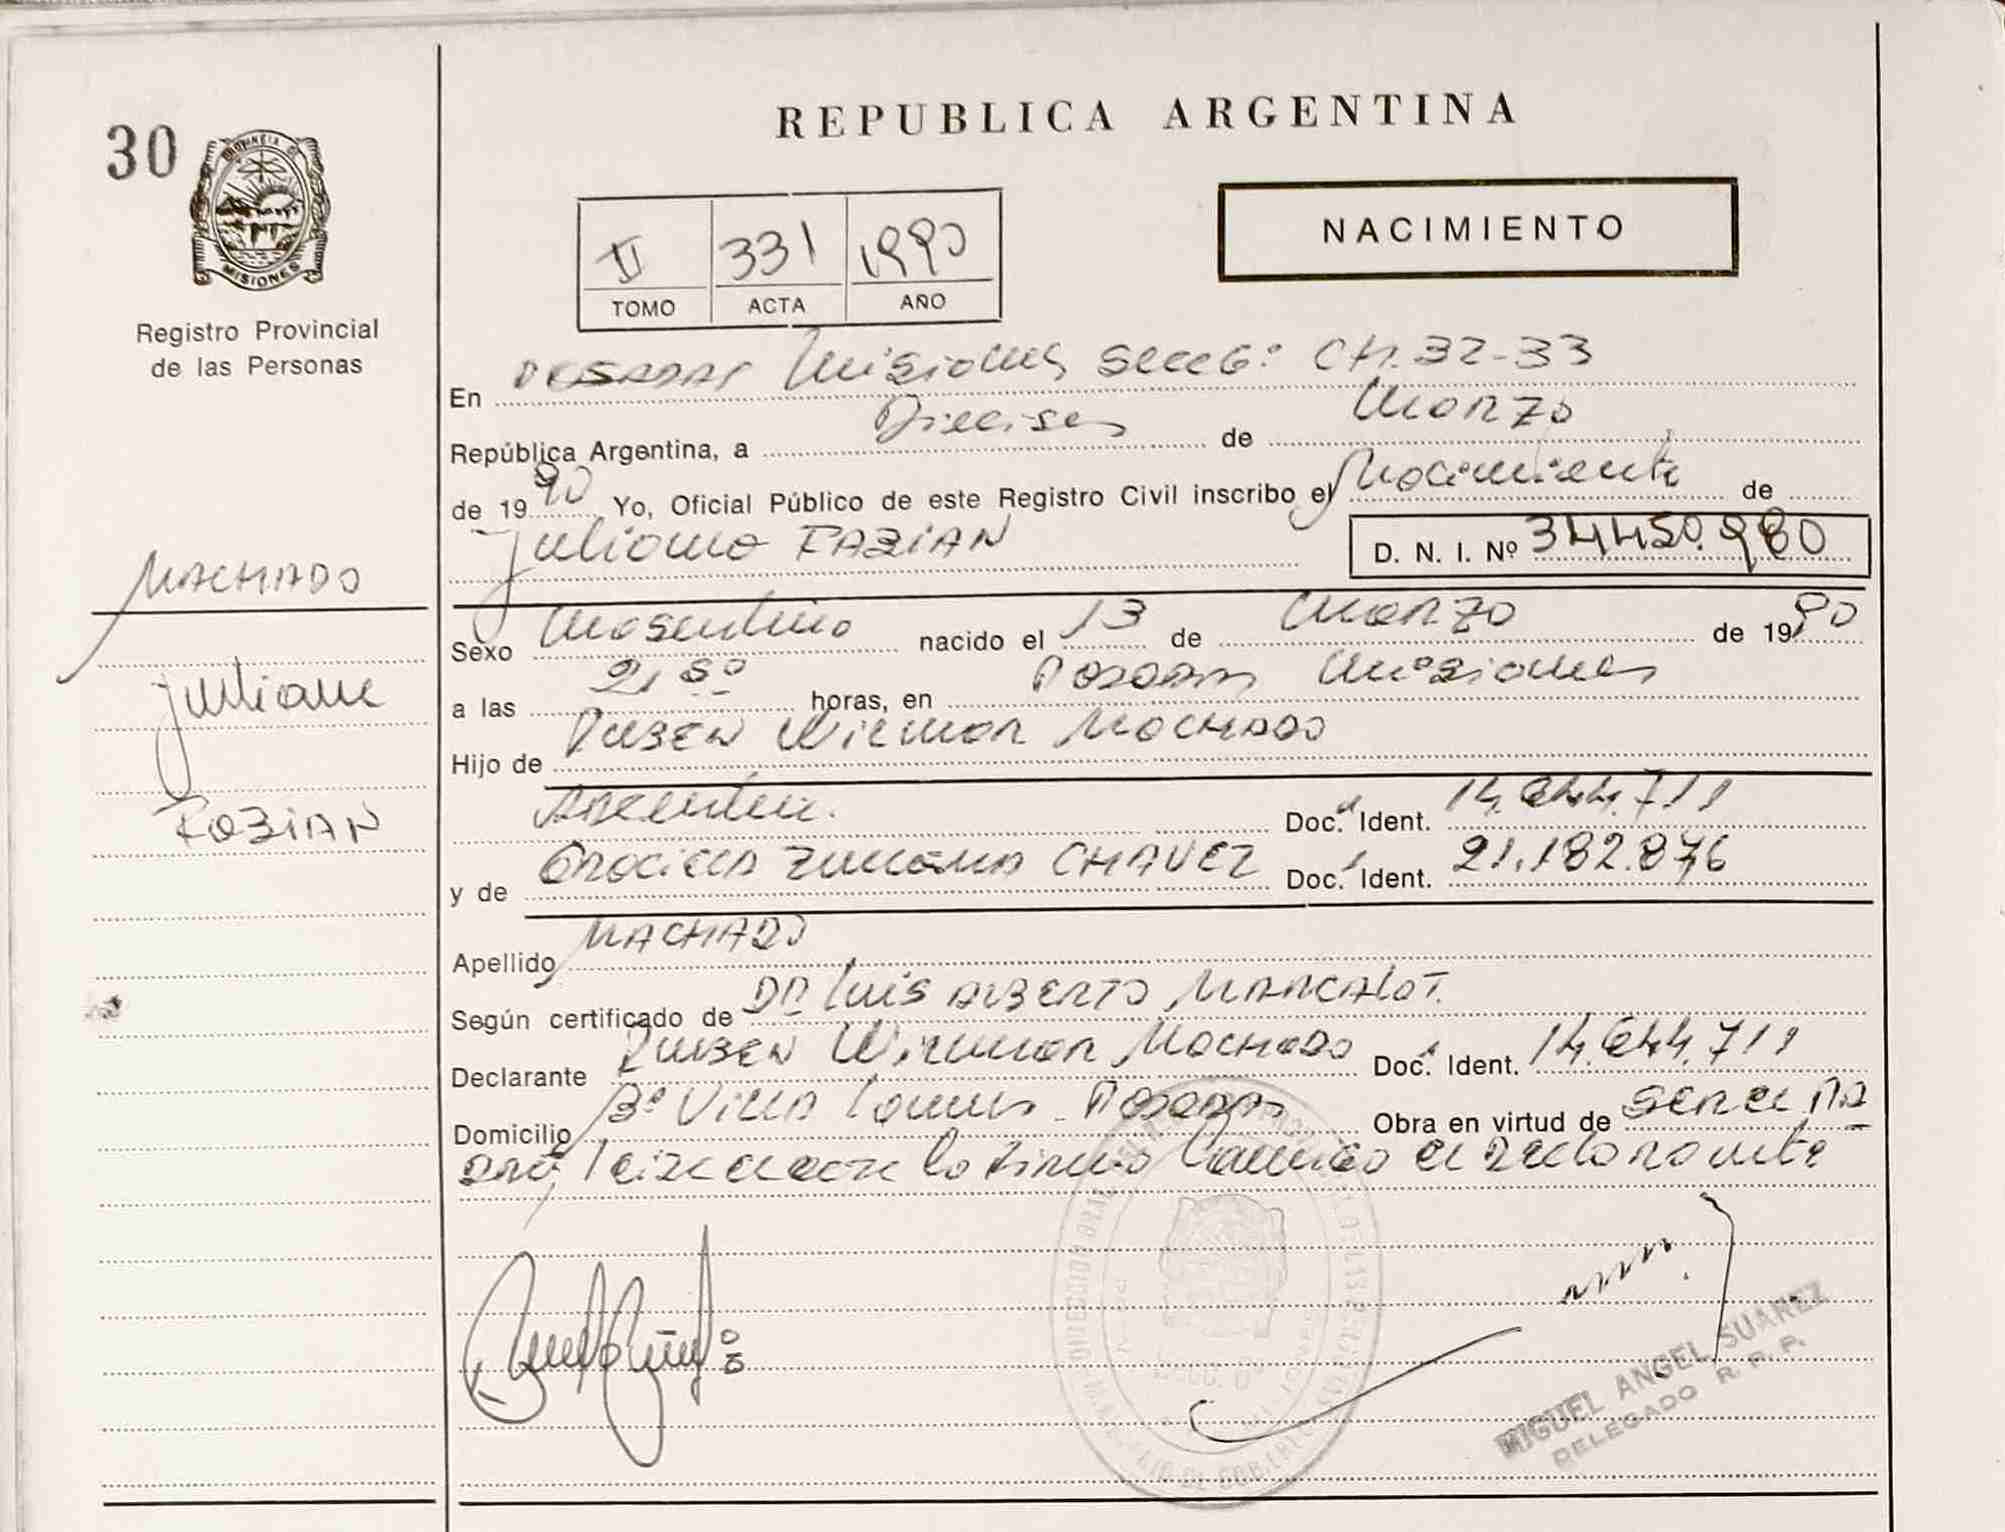 REPUBLICA ARGENTINA
30
PROVINCIA DE
MISIONES
Registro Provincial
de las Personas
II 331 1990
TOMO ACTA AÑO
NACIMIENTO
En POSADAS Misiones Secc 6º CH. 32-33
República Argentina, a Dieciseis de Marzo
de 1990 Yo, Oficial Público de este Registro Civil inscribo el Nacimiento de
Juliano FABIAN D. N. I. Nº 34.450.980
MACHADO
Juliano
FABIAN
Sexo Masculino nacido el 13 de Marzo de 1990
a las 21 50 horas, en Posadas Misiones
Hijo de RUBEN Wilmar MACHADO
Argentino. Doc. Ident. 14.644.711
y de Graciela Zulema CHAVEZ Doc. Ident. 21.182.876
Apellido MACHADO
Según certificado de DR Luis ALBERTO MARCALOT.
Declarante RUBEN Wilmar MACHADO Doc. Ident. 14.644.711
Domicilio Bº Villa Posadas Obra en virtud de ser el pa
dre, leida el acta la firma conmigo el declarante
MIGUEL ANGEL SUAREZ
DELEGADO R. P. P.